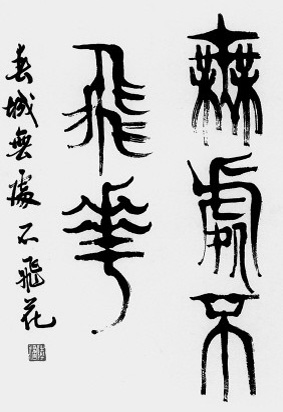 無處不
飛花
春城無處不飛花